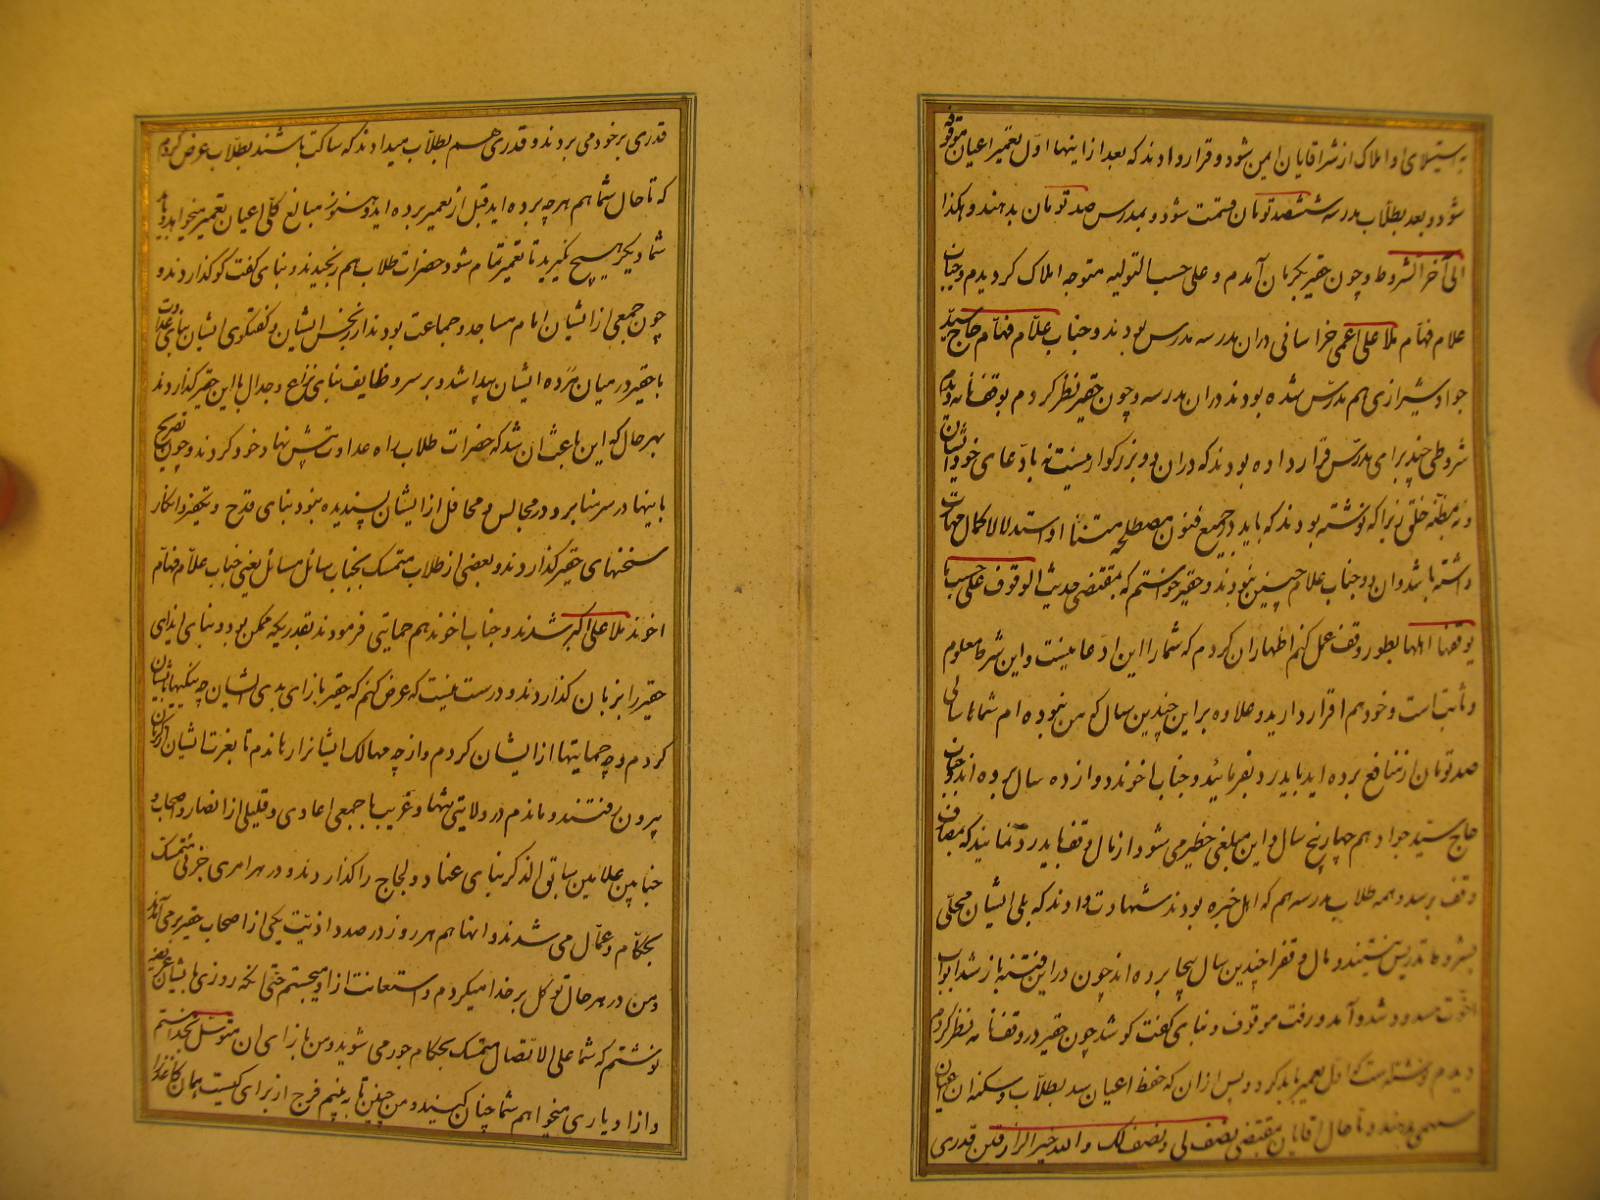 به استیلای او املاک از شر اقایان ایمن شود و قرار دادند که بعد از اینها اول تعمیر اعیان موقوفه
شود و بعد بطلاب مدرسه ششصد تومان قسمت شود و بمدرس صد تومان بدهند و هکذا
الی آخر الشروط و چون حقیر بکرمان آمدم و علی حسب التولیه متوجه املاک کردیدم و جناب
علام فهام ملا علی اعمی خراسانی دران مدرسه مدرس بودند و جناب علام فهام حاج سید
جواد شیرازی هم مدرس شده بودند دران مدرسه و چون حقیر نظر کردم بوقفنامه دیدم
شروطی چند برای مدرس قرار داده بودند که دران دو بزرکوار نیست نه بادعای خود ایشان
و نه مظنه خلق زیرا که نوشته بودند که باید در جمیع فنون مصطلحه متنا او استدلالا کمال مهارت
داشته باشد و ان دو جناب علام چنین نبودند و حقیر خواستم که بمقتضی حدیث الوقوف علی حسب ما
یوقفها اهلها بطور وقف عمل کنم اظهار ان کردم که شما را این ادعا نیست و این شرط معلوم
و ثابت است و خود هم اقرار دارید و علاوه بر این چندین سال که من نبوده ام شماها سالی
صد تومان از منافع برده اید باید رد بفرمائید و جناب اخوند دوازده سال برده اند و جناب
حاج سید جواد هم چهار پنج سال و این مبلغی خطیر می شود از مال وقف باید رد نمائید که بمصارف
وقف برسد و همه طلاب مدرسه هم که اهل خبره بودند شهادت دادند که بلی ایشان محلی
بشروط تدریس نیستند و مال وقف را چندین سال بیجا برده اند چون در این فتنه باز شد ابواب
اخوت مسدود شد و آمد و رفت موقوف و بنای کفت کو شد چون حقیر در وقفنامه نظر کردم
دیدم نوشته است که اول تعمیر باید کرد و پس از ان که حفظ اعیان شد بطلاب و سکنه ان اعیان
سهمی بدهند و تا حال اقایان بمقتضی نصف لی و نصف لک و الله خیر الرازقین قدری
قدری بر خود می بردند و قدری هم بطلاب میدادند که ساکت باشند بطلاب عرض کردم
که تا حال شما هم هر چه برده اید قبل از تعمیر برده اید و هنوز مبالغ کلی اعیان تعمیر میخواهد
شما دیکر هیچ نکیرید تا تعمیر تمام شود حضرات طلاب هم رنجیدند و بنای کفت کو گذاردند و
چون جمعی از ایشان امام مساجد و جماعت بودند از رنجش ایشان و کفتکوی ایشان بنای عداوت
با حقیر در میان مرده ایشان پیدا شد و بر سر وظایف بنای نزاع و جدال با این حقیر کذاردند
بهر حال که این باعث ان شد که حضرات طلاب راه عداوت پیش نهاد خود کردند و چون تصریح
باینها در سر منابر و در مجالس و محافل از ایشان پسندیده نبود بنای قدح و تکفیر و انکار
سخنهای حقیر کذاردند و بعضی از طلاب متمسک بجناب سائل مسائل یعنی جناب علام فهام
اخوند ملا علی اکبر شدند و جناب اخوند هم حمایتی فرمودند بقدریکه ممکن بود و بنای ایذای
حقیر را بزبان کذاردند و درست نیست که عرض کنم که حقیر بازای بدی ایشان چه نیکیها بایشان
کردم و چه حمایتها از ایشان کردم و از چه مهالک ایشانرا رهاندم تا بعزت ایشان از کرمان
بیرون رفتند و ماندم در ولایتی تنها و غریب با جمعی اعادی و قلیلی از انصار و اصحاب و
جنابین علامین سابق الذکر بنای عناد و لجاج را کذاردند و در هر امری جزئی متمسک
بحکام و عمال می شدند و انها هم هر روز در صدد اذیت یکی از اصحاب حقیر بر می آمدند
و من در هر حال توکل بر خدا میکردم و استعانت از او میجستم حتی انکه روزی بایشان عریضه
نوشتم که شما علی الاتصال متمسک بحکام جور می شوید و من بازای ان متوسل بخدا هستم
و از او یاری میخواهم شما چنان کنید و من چنین تا به بینم فرج از برای کیست همان کاغذ را